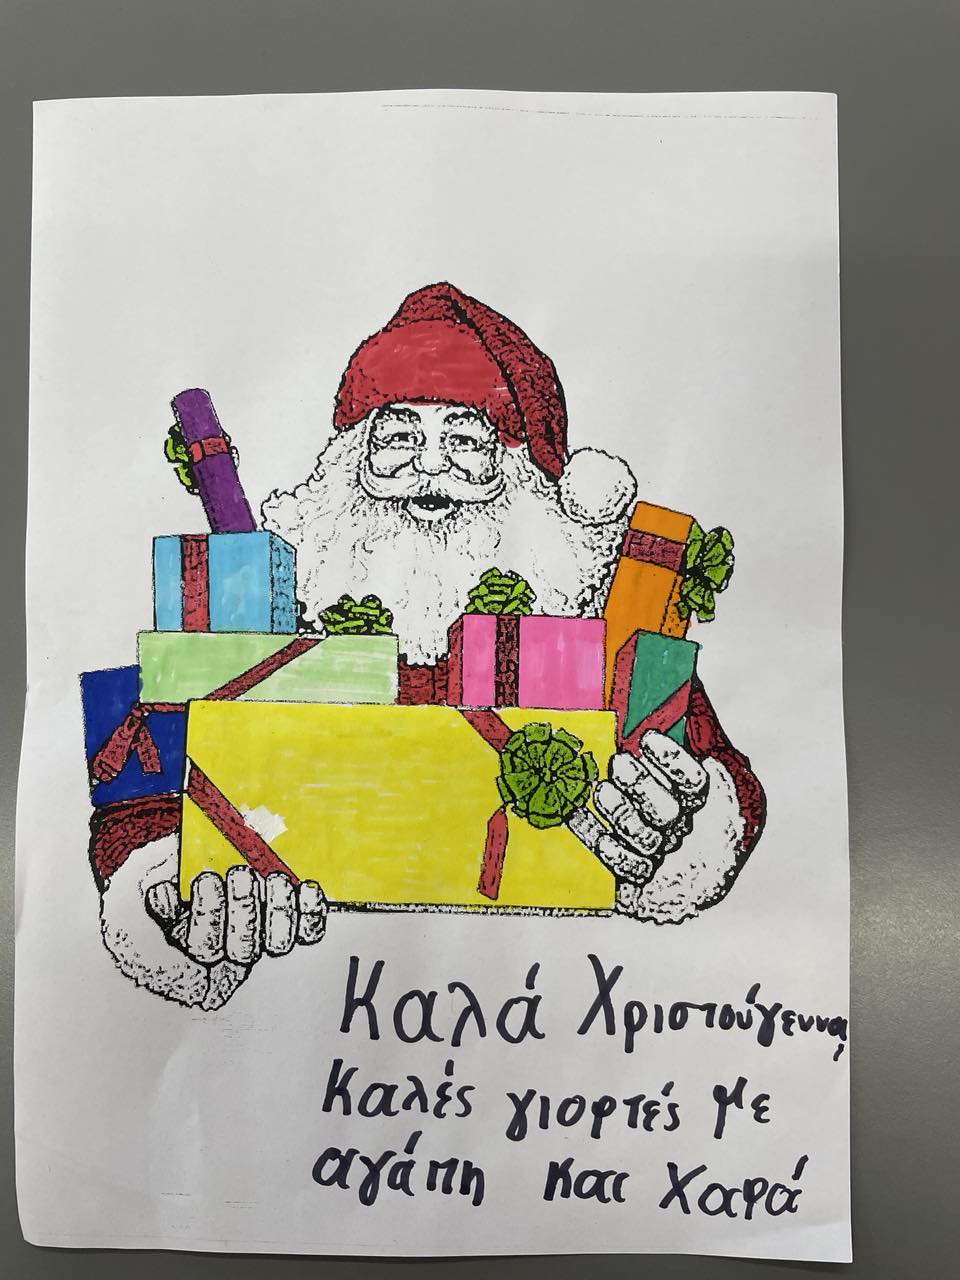 Καλά Χριστούγεννα,
Καλές γιορτές με
αγάπη και Χαρά